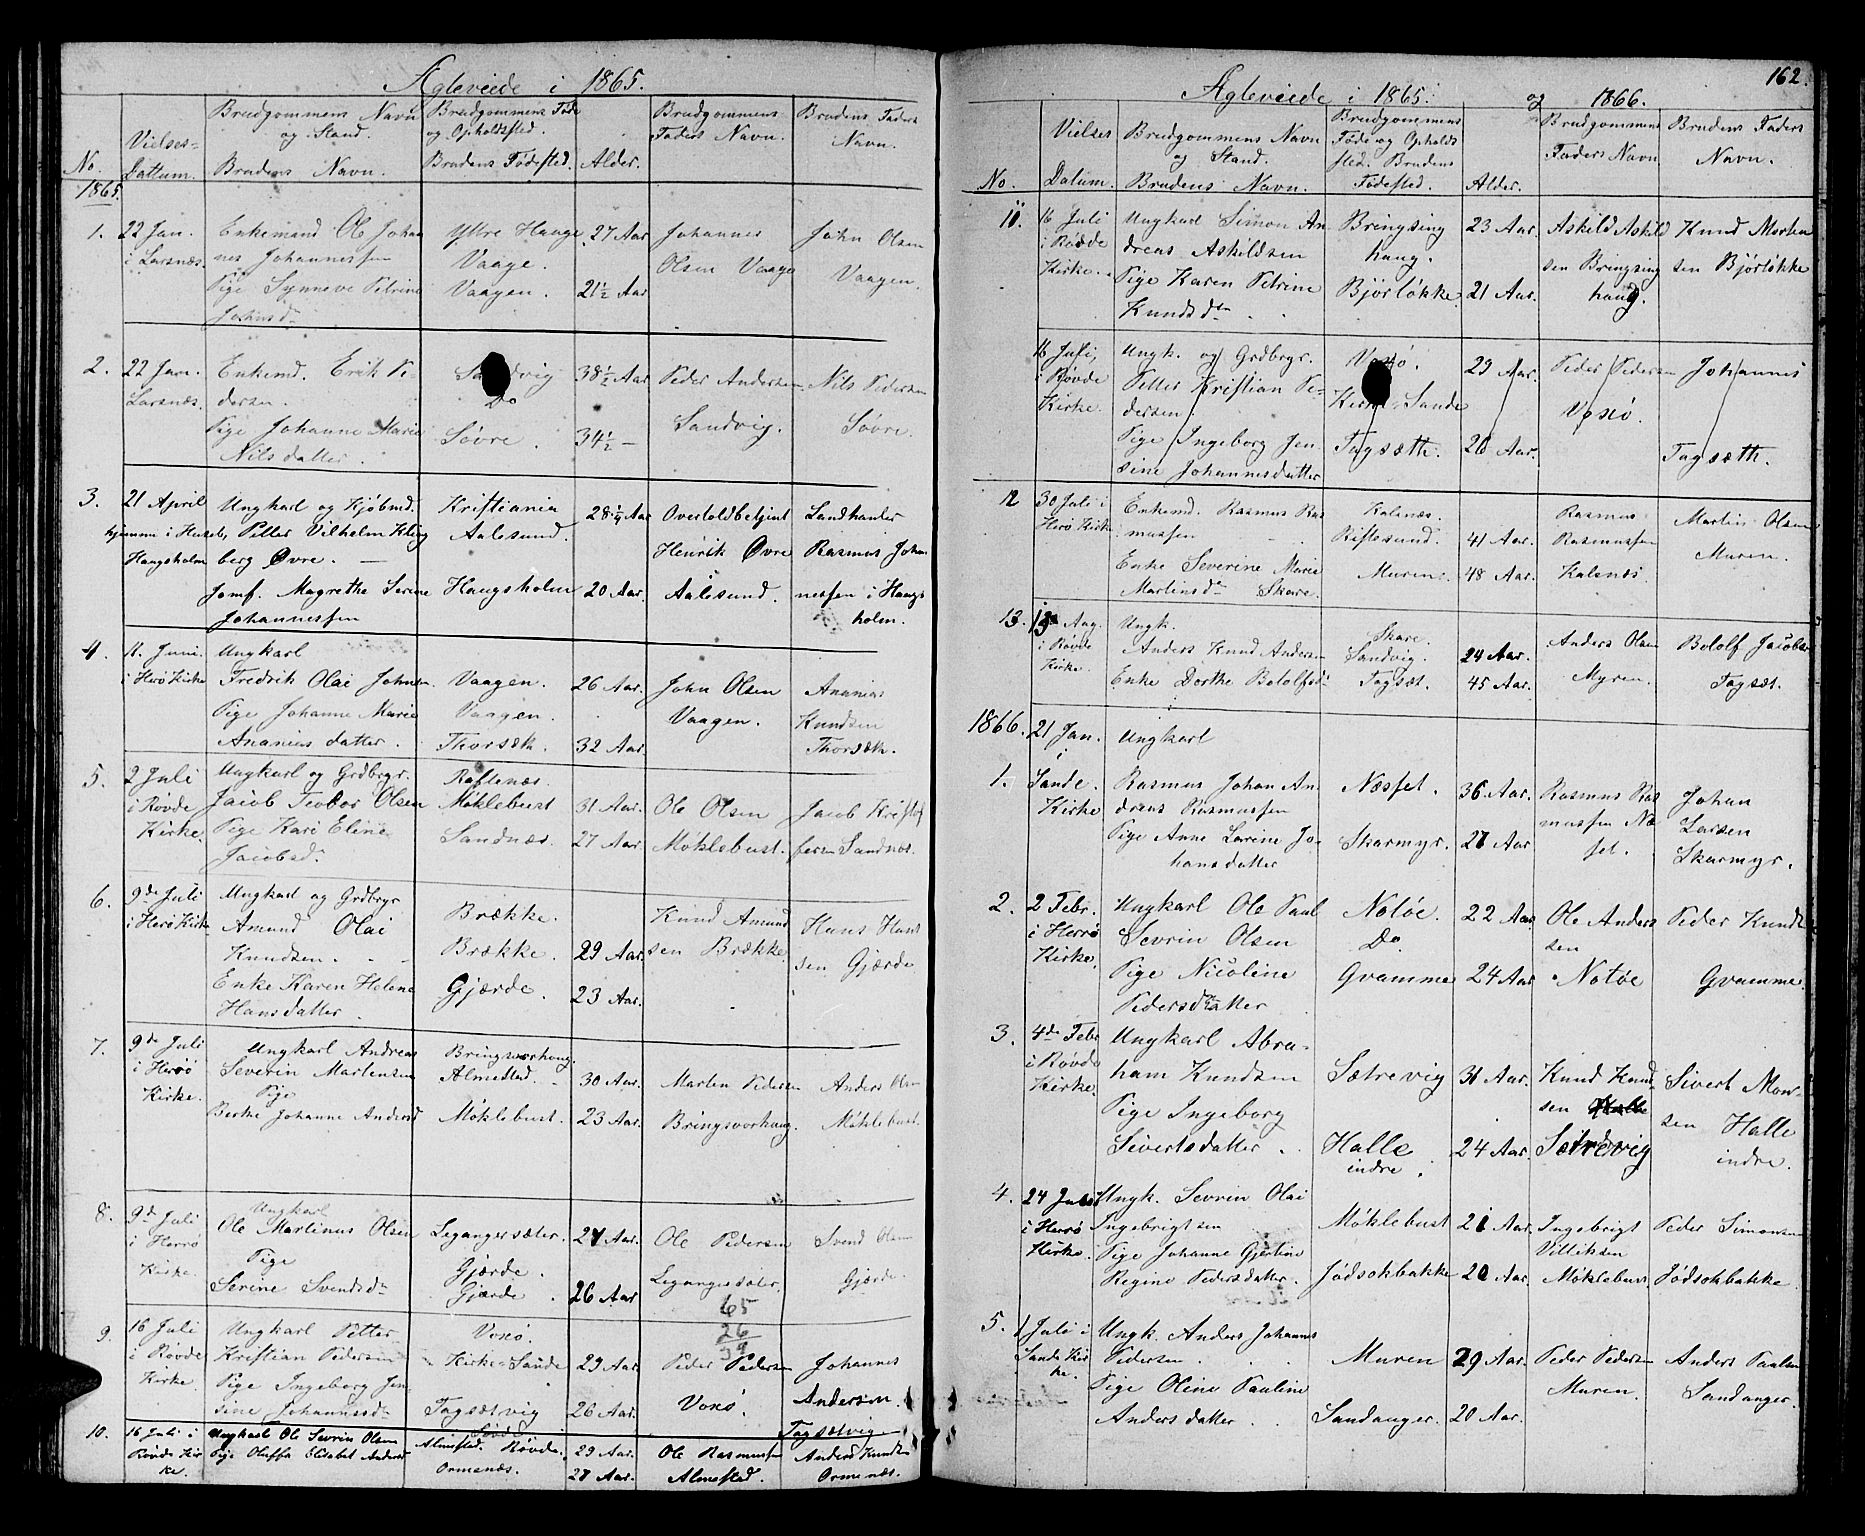 Ægteviede i 1865.
No.
Vielses-
Dattum.
Brudgommens Navn
og Stand.
Brudens Navn.
Brudgommens Føde
og Opholdsted.
Brudens Fødested.
Alder.
Brudgommens
Faders Navn.
Brudens Faders
Navn.
1865.
1.
22 Jan.
i Larsnæs.
Enkemand Ole Johan
nes Johannessen
Pige Synneve Petrine
Johnsd.
Yttre Hauge
Vaage.
Vaagen.
27 Aar
21½ Aar
Johannes
Olsen Vaage
John Olsen
Vaagen.
2.
22 Jan.
Larsnæs.
Enkemd. Erik Pe-
dersen.
Pige Johanne Marie
Nilsdatter.
Sandvig
Do
Søvre.
38½ Aar
34½ —
Peder Andersen
Sandvig.
Nils Pedersen
Søvre.
3.
21 April
hjemme i Huset,
Haugsholm
Ungkarl og Kjøbmd.
Petter Vilhelm Kling
berg Øvre. —
Jomf. Magrethe Serine
Johannessen
Kristiania
Aalesund.
Haugsholm
28¼ Aar
20 Aar.
Overtoldbetjent
Henrik Øvre
Aalesund.
Landhanler
Rasmus Johan
nessen i Haugs
holm.
4.
11. Juni.
i Herø Kirke
Ungkarl
Fredrik Olai Johnsen
Pige Johanne Marie
Ananias datter.
Vaagen.
Vaagen.
Thorsæk.
26 Aar.
32 Aar.
John Olsen
Vaagen.
Ananias
Knudsen
Thorsæk.
5.
2 Juli
i Røvde
Kirke.
Ungkarl og Grdbrgr.
Jacob Teodor Olsen
Pige Kari Eline
Jacobsd.
Raftenæs.
Møklebust
Sandnæs.
31 Aar.
27 Aar.
Ole Olsen
Møklebust.
Jacob Kristof
fersen Sandnæs.
6.
9de Juli
i Herø Kirke
Ungkarl og Grdbrgr
Amund Olai
Knudsen.
Enke Karen Helene
Hansdatter.
Brække.
Brække.
Gjærde.
29 Aar.
23 Aar.
Knud Amund
sen Brække
Hans Han
sen Gjærde
7.
9de Juli
i Herø
Kirke.
Ungkarl Andreas
Severin Martensen
Pige
Berte Johanne Andersd
Bringsvorhaug.
Almestad.
Møklebust.
30 Aar.
23 Aar.
Marten Pedersen
Bringsvorhaug.
Anders Olsen
Møklebust.
8.
9de Juli
i Herrø
Kirke.
Ungkarl
Ole Martinus Olsen
Pige
Serine Svendsdr
Legangersæter.
Gjærde.
Gjærde.
24 Aar.
26 Aar
Ole Pedersen
Legangersæter
Svend Olsen
Gjærde.
65
26
39
9.
16 Juli
i Røvde
Kirke
Ungkarl Petter
Kristian Pedersen
Pige Ingeborg Jen
sine Johannesd.
Voksø.
Kirke-Sande
Tagsætvig
29 Aar.
26 Aar.
Peder Pedersen
Voxø.
Johannes
Andersen
Tagsætvig
10.
16 Juli i
Røvde Kir
ke.
Ungkarl Ole Sevrin Olsen
Pige Oluffa Elisabet Andersd
Almestad. Røvde.
Ormenæs.
29 Aar.
27 Aar.
Ole Rasmussen
Almestad.
Anders Knudsen
Ormenæs.
162
Ægteviede i 1865. og 1866.
No.
Vielses
Datum.
Brudgommens Navn
og Stand.
Brudens Navn.
Brudgommens
Føde og Opholds
sted. Brudens
Fødested.
Alder.
Brudgommens
Faders Navn
Brudens Faders
Navn.
11.
16 Juli
i Rødde
Kirke.
Ungkarl Simon An
dreas Askildsen
Pige Karen Petrine
Knudsdtr
Bringsing
haug.
Bjørløkke
23 Aar.
21 Aar.
Askild Askild
sen Bringsing
haug.
Knud Marten
sen Bjørløkke
16 Juli,
i Røvde
Kirke.
Ungk. og Grdbrgr.
Petter Kristian Pe-
dersen
Pige Ingeborg Jen
sine Johannesdatter
Voxø.
Kirke-Sande
Tagsæth.
29 Aar.
26 Aar.
Peder Pedersen
Voxø.
Johannes
Tagsæth.
12
30 Juli i
Herø Kirke
Enkemd. Rasmus Ras
mussen
Enke Severine Marie
Martinsdr Skare.
Kalsnæs.
Riftesund.
Muren.
41 Aar.
48 Aar.
Rasmus
Rasmussen
Kalsnæs.
Martin Olsen
Muren.
13.
13 Aug.
i Røvde
Kirke.
Ungk.
Anders Knud Andersen
Enke Dorthe Bololfsd.
Skare.
Sandvig.
Tagsæt.
24 Aar.
45 Aar.
Anders Olsen
Myren.
Bololf Jacobsen
Tagsæt.
1866.
1.
21 Jan.
i
Sande.
Kirke
Ungkarl
Rasmus Johan An
dreas Rasmussen
Pige Anne Larine Jo-
hansdatter
Næsset.
Skarmyr.
36 Aar.
27 Aar
Rasmus Ras
mussen Næ
set.
Johan
Larsen
Skarmyr.
2.
2 Febr.
i Herrø
Kirke.
Ungkarl Ole Paul
Sevrin Olsen
Pige Nicoline
Pedersdatter
Notøe.
Do
Gramme
22 Aar
24 Aar.
Ole Anders
sen
Notøe
Peder Knudsen
Gramme.
3.
4de Febr
i Røvde
Kirke.
Ungkarl Abra-
ham Knudsen
Pige Ingeborg
Sivertsdatter.
Sætrevig
Halle
indre.
31 Aar.
24 Aar.
Knud Knud
sen
Sætrevig
Sivert Mon-
sen Halle
indre.
4.
24 Juni
i Herrø
Kirke.
Ungk. Sevrin Olai
Ingebrigtsen
Pige Johanne Gjertine
Regine Pedersdatter.
Møklebust
Jødsokbakke
21 Aar.
20 Aar.
Ingebrigt
Villiksen
Møklebust
Peder Simonsen
Jødsokbakke.
5.
1 Juli i
Sande Kir
ke.
Ungk. Anders Johannes
Pedersen
Pige Oline Pauline
Andersdatter
Muren
Sandanger.
29 Aar.
20 Aar.
Peder Pedersen
Muren.
Anders Paulsen
Sandanger.